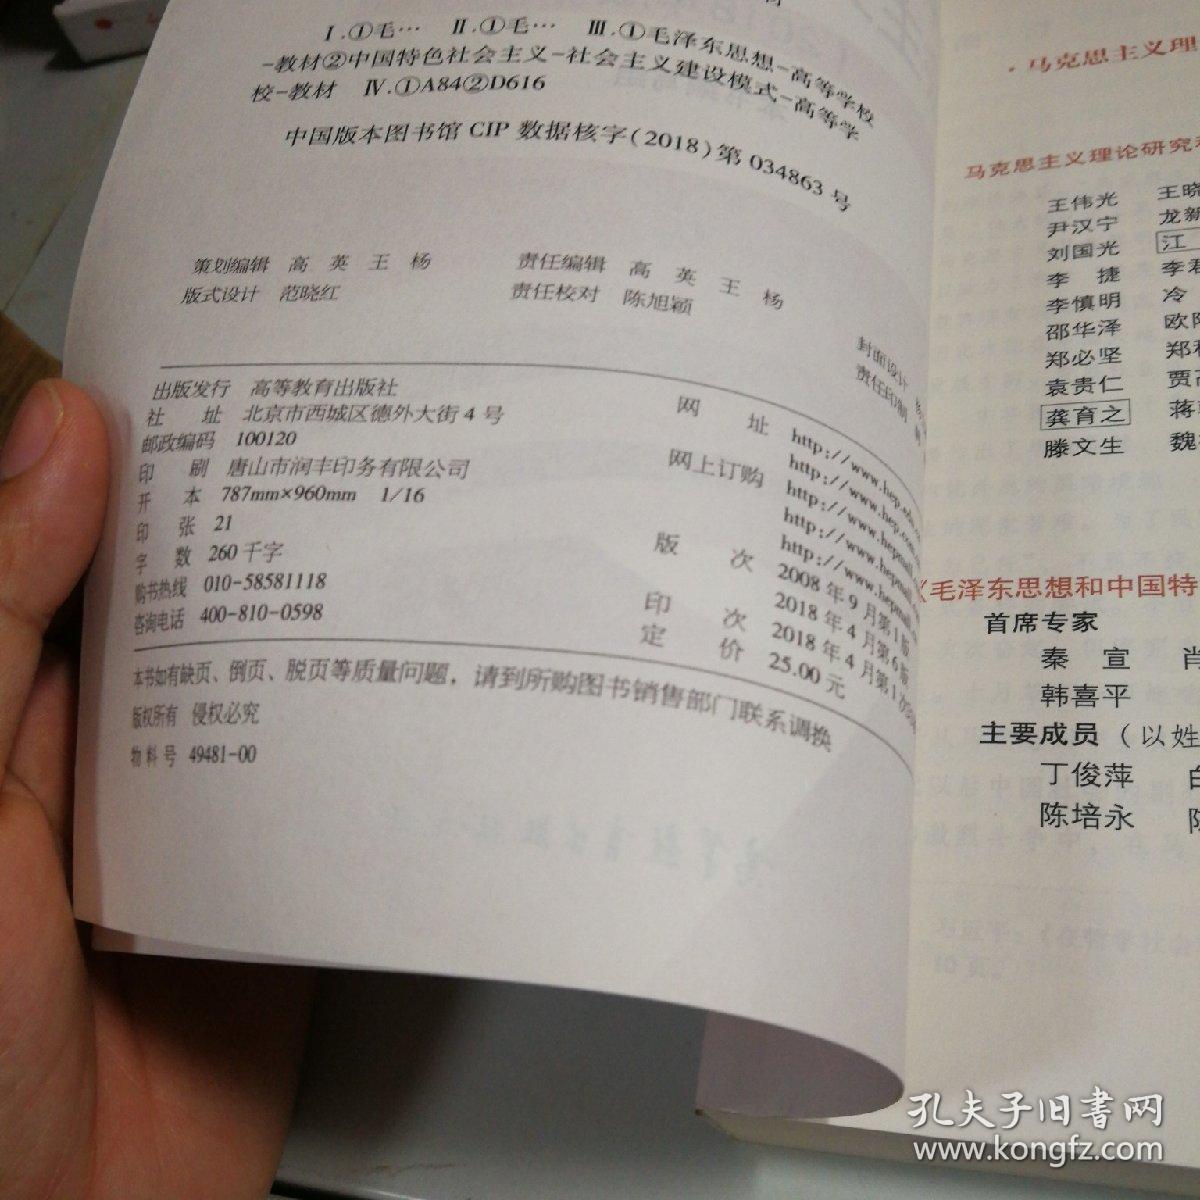 Ⅰ.①毛… Ⅱ.①毛… Ⅲ.①毛泽东思想-高等学校
-教材②中国特色社会主义-社会主义建设模式-高等学
校-教材 Ⅳ.①A84②D616
中国版本图书馆 CIP 数据核字(2018)第 034863 号
策划编辑 高 英 王 杨 责任编辑 高 英 王 杨 封面设计
版式设计 范晓红 责任校对 陈旭颖 责任印制
出版发行 高等教育出版社
社 址 北京市西城区德外大街 4 号
邮政编码 100120
印 刷 唐山市润丰印务有限公司
开 本 787mm×960mm 1/16
印 张 21
字 数 260 千字
购书热线 010-58581118
咨询电话 400-810-0598
网 址 http://www.hep.edu
http://www.hep.com
网上订购 http://www.hepmall
http://www.hepmall
http://www.hepmall
版 次 2008 年 9 月第 1 版
2018 年 4 月第 6 版
印 次 2018 年 4 月第 1 次
定 价 25.00 元
本书如有缺页、倒页、脱页等质量问题，请到所购图书销售部门联系调换
版权所有 侵权必究
物 料 号 49481-00
·马克思主义理
马克思主义理论研究
王伟光 王晓
尹汉宁 龙新
刘国光 江
李 捷 李君
李慎明 冷
邵华泽 欧阳
郑必坚 郑科
袁贵仁 贾高
龚育之 蒋
滕文生 魏
《毛泽东思想和中国特
首席专家
秦 宣 肖
韩喜平
主要成员（以姓
丁俊萍 白
陈培永 陈
孔夫子旧书网
www.kongfz.com